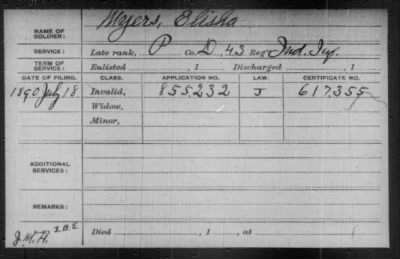 NAME OF SOLDIER: Meyers, Elisha
SERVICE: Late rank, P Co. D, 43 Reg't Ind. Inf.
TERM OF SERVICE: Enlisted , 1 Discharged , 1
DATE OF FILING. CLASS. APPLICATION NO. LAW. CERTIFICATE NO.
1890 July 18 Invalid, 855.232 J 617.355
Widow,
Minor,
ADDITIONAL SERVICES:
REMARKS:
J.M.H. Died , 1 , at